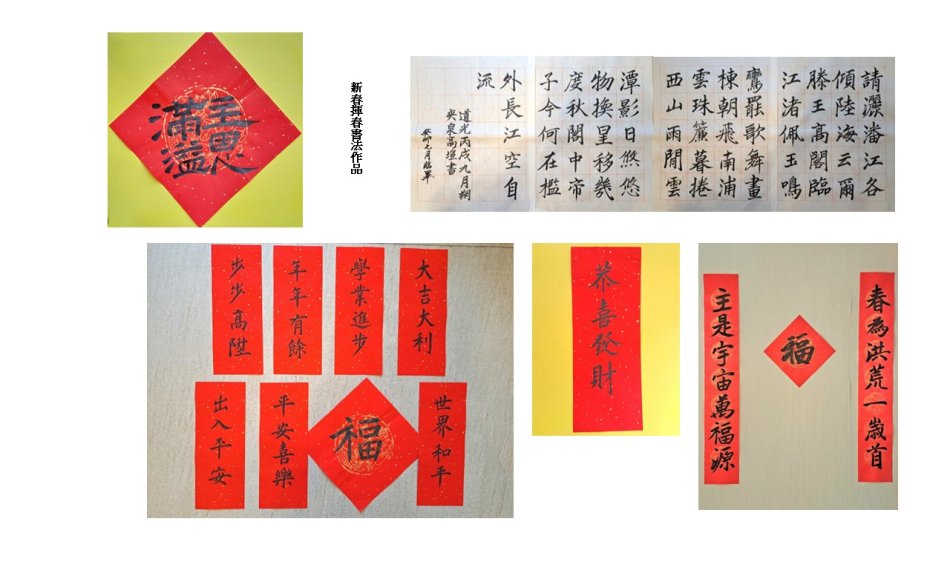 主恩
滿溢
新春揮春書法作品
請灑潘江各
傾陸海云爾
滕王高閣臨
江渚佩玉鳴
鸞罷歌舞畫
棟朝飛南浦
雲珠簾暮捲
西山雨閒雲
潭影日悠悠
物換星移幾
度秋閣中帝
子今何在檻
外長江空自
流
道光丙戌九月朔
癸卯七月臨畢
大吉大利
學業進步
年年有餘
步步高陞
世界和平
福
平安喜樂
出入平安
恭喜發財
春為洪荒一歲首
福
主是宇宙萬福源